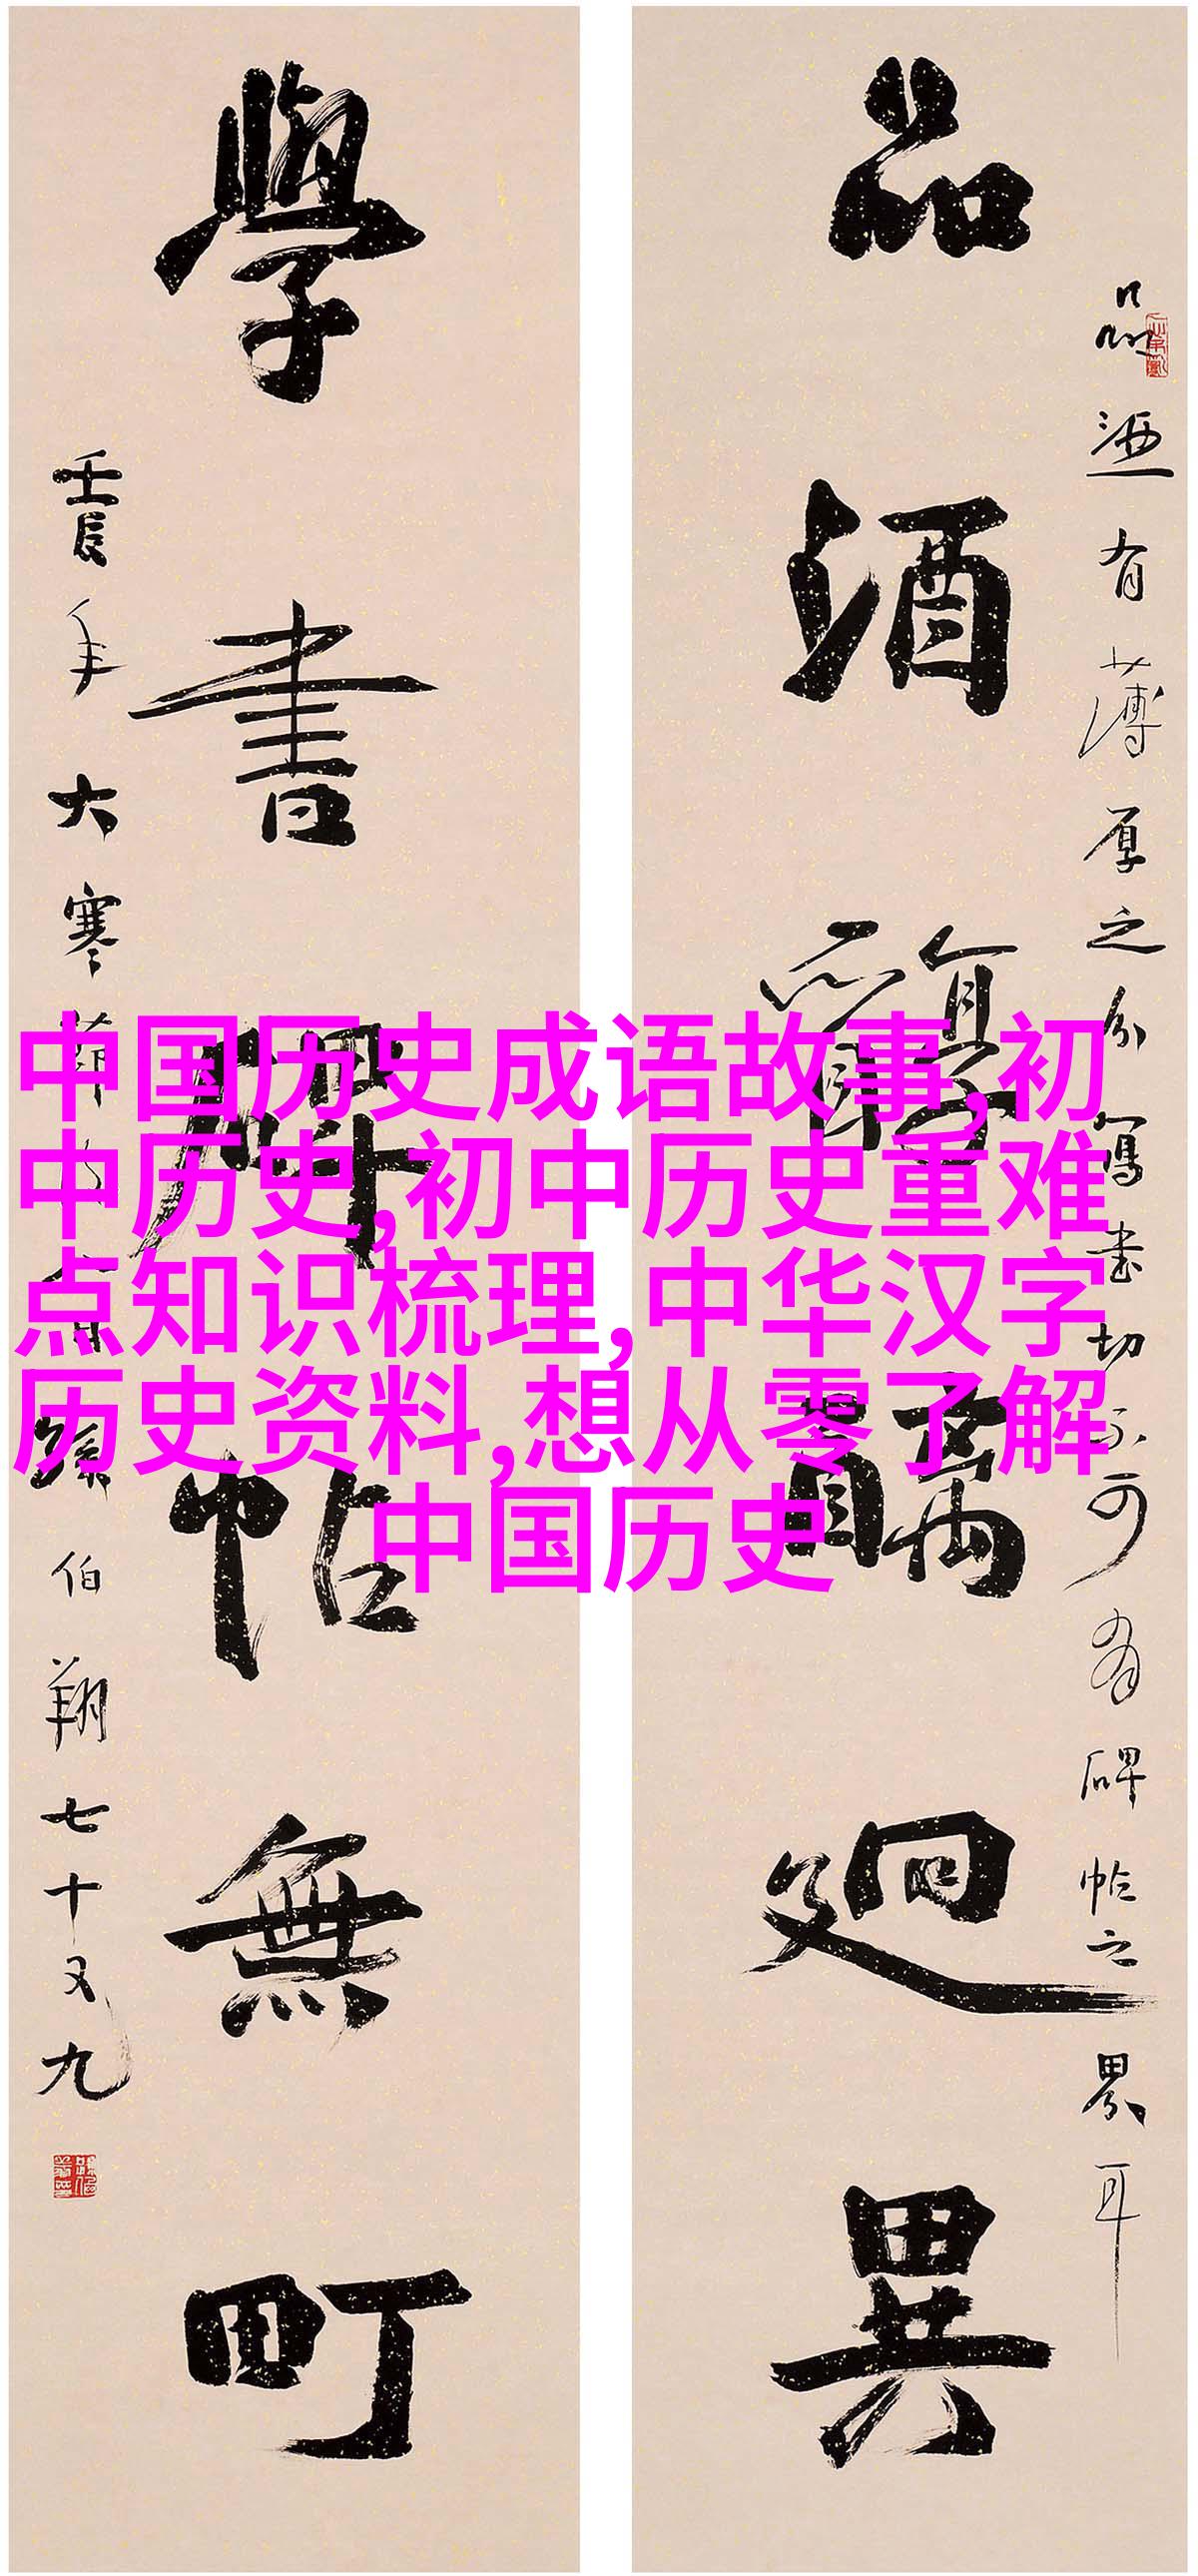 品酒醇醨迥異
品酒有薄厚之分寫書切不可有碑帖之界耳
學書碑帖無町
壬辰年大寒節
孫伯翔七十又九
中国历史成语故事,初
中历史,初中历史重难
点知识梳理,中华汉字
历史资料,想从零了解
中国历史